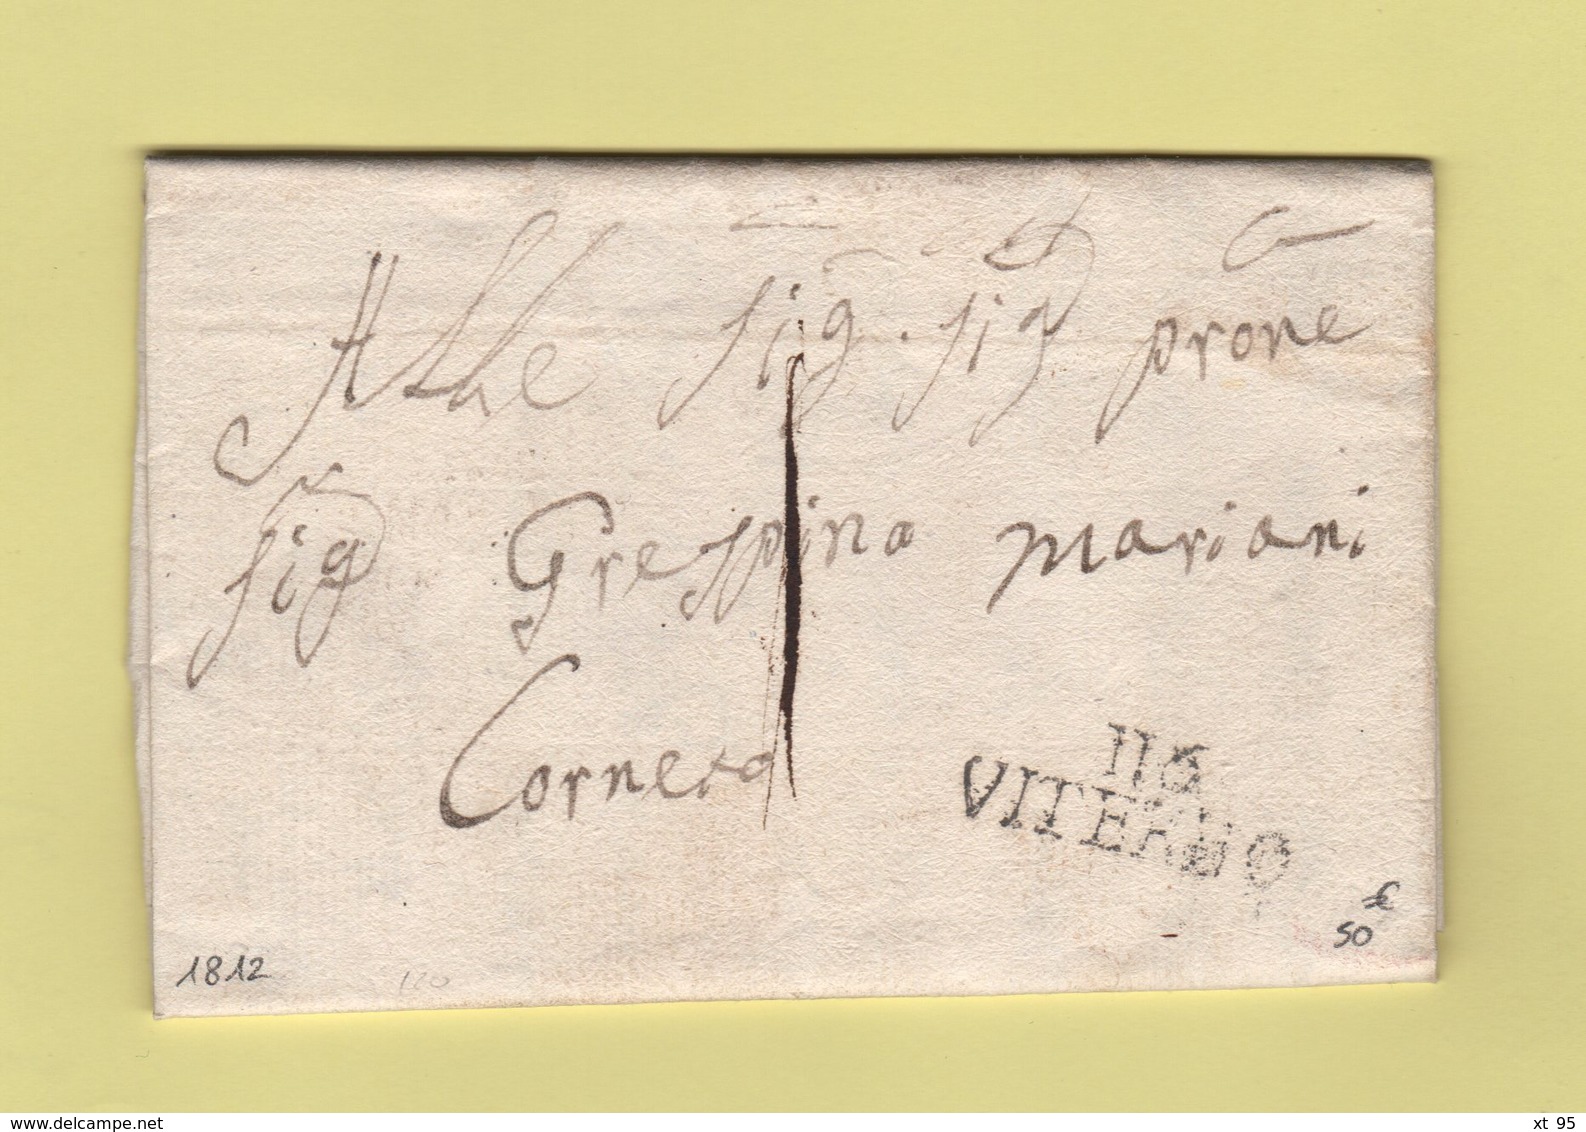 All e Sig. Sig prone
Sig Grespino Mariani
Corneto
1
116
VITERBO
50
1812
120
delcampe.net
xt 95